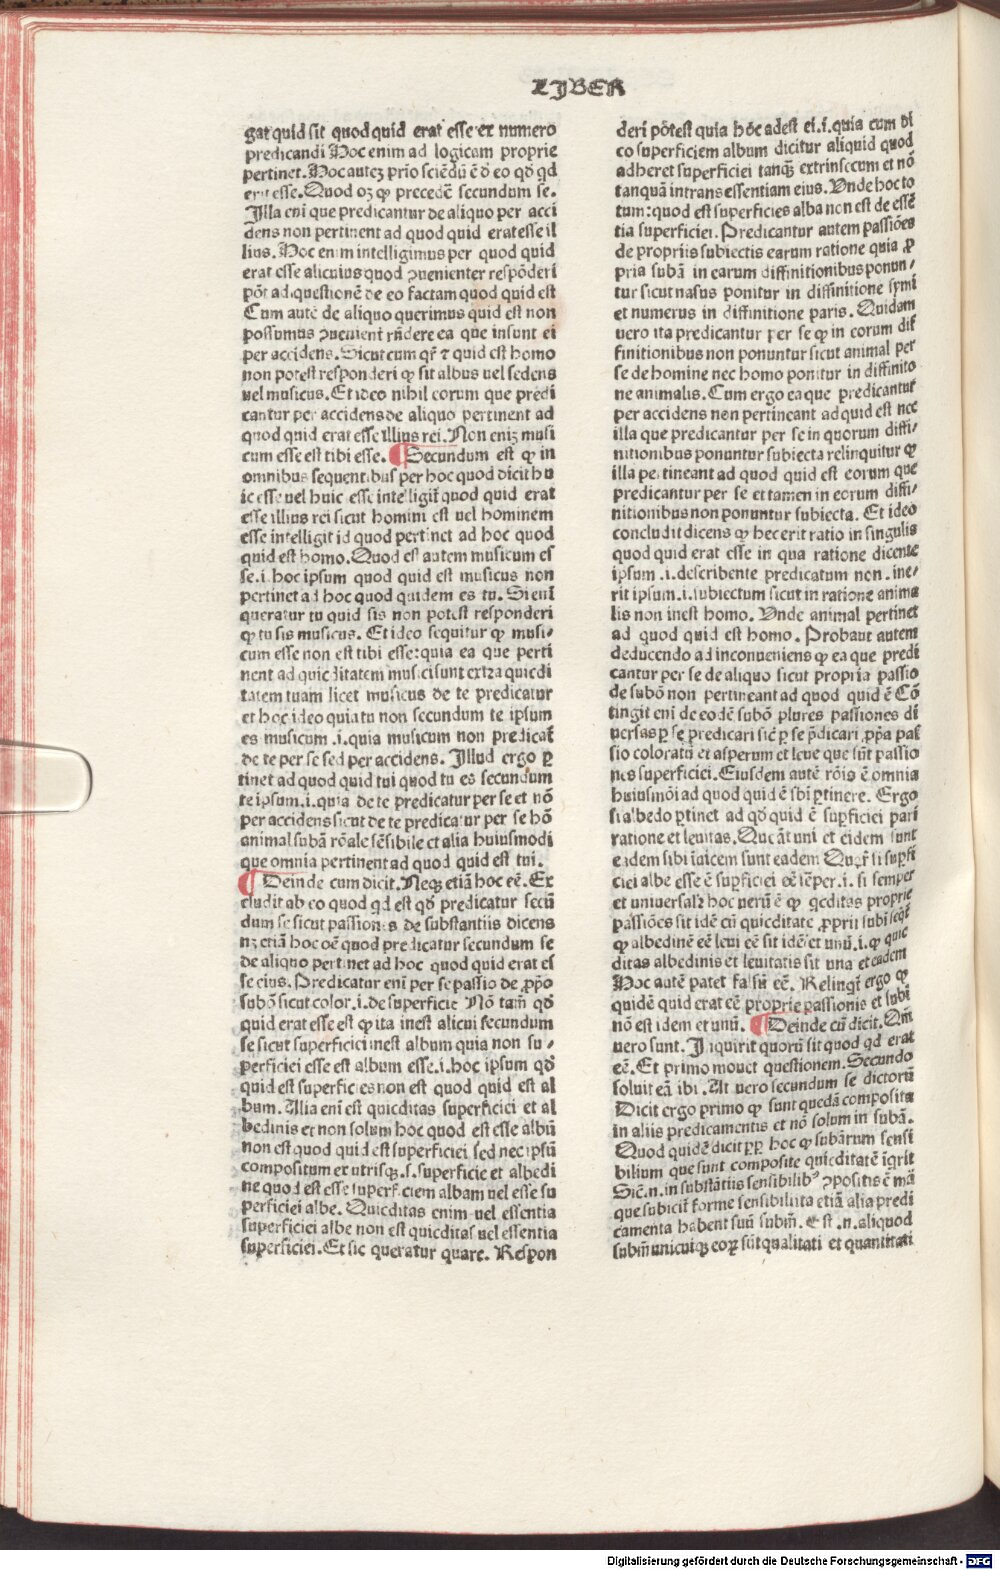 LIBER
gat quid sit quod quid erat esse ex numero
predicandi Hoc enim ad logicam proprie
pertinet. Hoc autez prio sciēdū ē ꝺ eo qđ qd
erit esse. Quod oꝫ ꝙ precedē secundum se.
Illa eni que predicantur de aliquo per acci
dens non pertinent ad quod quid erat esse il
lius. Hoc enim intelligimus per quod quid
erat esse alicuius quod ꝯuenienter respōderi
pōt ad questionē de eo factam quod quid est
Cum autē de aliquo querimus quid est non
possumus ꝯuenient rñdere ea que insunt ei
per accidens. Sicut cum qr̄ ⁊ quid est homo
non potest responderi ꝙ sit albus uel sedens
uel musicus. Et ideo nihil eorum que predi
cantur per accidens de aliquo pertinent ad
quod quid erat esse illius rei. Non eniꝫ musi
cum esse est tibi esse. ¶ Secundum est ꝙ in
omnibus sequentibus per hoc quod dicit hu
ic esse uel huic esse intelligit̄ quod quid erat
esse illius rei sicut homini est uel hominem
esse intelligit id quod pertinet ad hoc quod
quid est homo. Quod est autem musicum es
se .i. hoc ipsum quod quid est musicus non
pertinet ad hoc quod quidem es tu. Si eni
queratur tu quid sis non potest responderi
ꝙ tu sis musicus. Et ideo sequitur ꝙ musi⸗
cum esse non est tibi esse: quia ea que perti
nent ad quicditatem musici sunt extra quicdi
tatem tuam licet musicus de te predicatur
et hoc ideo quia tu non secundum te ipsum
es musicum .i. quia musicum non predicat̄
de te per se sed per accidens. Illud ergo ꝑ
tinet ad quod quid tui quod tu es secundum
te ipsum .i. quia de te predicatur per se et nō
per accidens sicut de te predicatur per se hō
animal subā rōale sēsibile et alia huiusmodi
que omnia pertinent ad quod quid est tui.
¶ Deinde cum dicit. Neqꝫ etiā hoc eē. Ex
cludit ab eo quod qd est qđ predicatur secū
dum se sicut passiones de substantiis dicens
nꝫ etiā hoc oē quod predicatur secundum se
de aliquo pertinet ad hoc quod quid erat es
se eius. Predicatur eni per se passio de ꝓpo
subō sicut color .i. de superficie Nō tam̄ qđ
quid erat esse est ꝙ ita inest alicui secundum
se sicut superficiei inest album quia non su⸗
perficiei esse est album esse .i. hoc ipsum qđ
quid est superficies non est quod quid est al
bum. Alia eni est quicditas superficiei et al
bedinis et non solum hoc quod est esse albū
non est quod quid est superficiei sed nec ipsū
compositum ex utrisqꝫ .s. superficie et albedi
ne quod est esse superficiem albam uel esse su
perficiei albe. Quicditas enim uel essentia
superficiei albe non est quicditas uel essentia
superficiei. Et sic queratur quare. Respon
deri pōtest quia hoc adest ei .i. quia cum di
co superficiem album dicitur aliquid quod
adheret superficiei tanqꝫ extrinsecum et nō
tanquā intrans essentiam eius. Unde hoc to
tum: quod est superficies alba non est de essē
tia superficiei. Predicantur autem passiōes
de propriis subiectis earum ratione quia ꝓ
pria subā in earum diffinitionibus ponun⸗
tur sicut nasus ponitur in diffinitione symi
et numerus in diffinitione paris. Quidam
uero ita predicantur per se ꝙ in eorum dif
finitionibus non ponuntur sicut animal per
se de homine nec homo ponitur in diffinito
ne animalis. Cum ergo ea que predicantur
per accidens non pertineant ad quid est nec
illa que predicantur per se in quorum diffi⸗
nitionibus ponuntur subiecta relinquitur ꝙ
illa pertineant ad quod quid est eorum que
predicantur per se et tamen in eorum diffi⸗
nitionibus non ponuntur subiecta. Et ideo
concludit dicens ꝙ hec erit ratio in singulis
quod quid erat esse in qua ratione dicente
ipsum .i. describente predicatum non .ine⸗
rit ipsum .i. subiectum sicut in ratione anima
lis non inest homo. Unde animal pertinet
ad quod quid est homo. Probaut autem
deducendo ad inconueniens ꝙ ea que predi
cantur per se de aliquo sicut propria passio
de subō non pertineant ad quod quid ē Cō
tingit eni de eodē subō plures passiones di
uersas ꝑ se predicari sic̄ ꝑ se p̄dicari ꝓpa pas
sio coloratū et asperum et leue que sūt passio
nes superficiei. Eiusdem autē rōis ē omnia
huiusmōi ad quod quid ē sbi ꝑtinere. Ergo
si albedo ꝑtinet ad qđ quid ē suꝑficiei pari
ratione et leuitas. Que āt uni et eidem sunt
eadem sibi iuicem sunt eadem Quar̄ si suꝑfi
ciei albe esse ē suꝑficiei eē sēper .i. si semper
et universalr̄ hoc uerū ē ꝙ qcditas proprie
passiōes sit idē cū quicditate ꝓprii subi seqr̄
ꝙ albedinē eē leui eē sit idē et unū .i. ꝙ quic
ditas albedinis et leuitatis sit una et eadem
Hoc autē patet falsū eē. Relinqr̄ ergo ꝙ
quidē quid erat eē proprie passionis et subi
nō est idem et unū. ¶ Deinde cū dicit. Qm̄
uero sunt. Inquirit quorū sit quod qd erat
eē. Et primo mouet questionem. Secundo
soluit eā ibi. At uero secundum se dictorū
Dicit ergo primo ꝙ sunt quedā composita
in aliis predicamentis et nō solum in subā.
Quod quidē dicit ꝓꝑ hoc ꝙ subārum sensi
bilium que sunt composite quicditatē īqrit
Sic̄ .n. in substātiis sensibilibꝰ ꝯpositis ē mā
que subicit̄ forme sensibilita etiā alia predi
camenta habent suū subm̄. Est .n. aliquod
subm̄ unicuiqꝫ eoꝝ sūt qualitati et quantitati
Digitalisierung gefördert durch die Deutsche Forschungsgemeinschaft - DFG